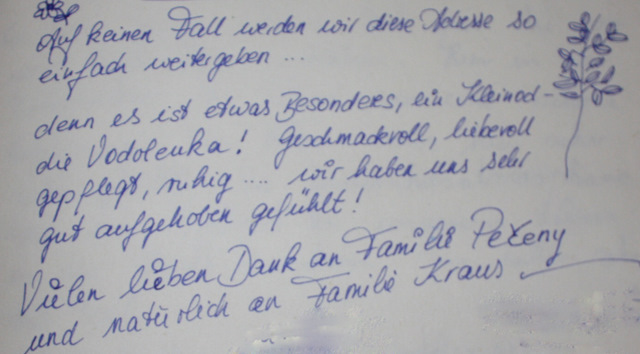 Auf keinen Fall werden wir diese Adresse so
einfach weitergeben ...
denn es ist etwas Besonders, ein Kleinod -
die Vodolenka! Geschmackvoll, liebevoll
gepflegt, ruhig .... wir haben uns sehr
gut aufgehoben gefühlt!
Vielen lieben Dank an Familie
und natürlich an Familie Kraus